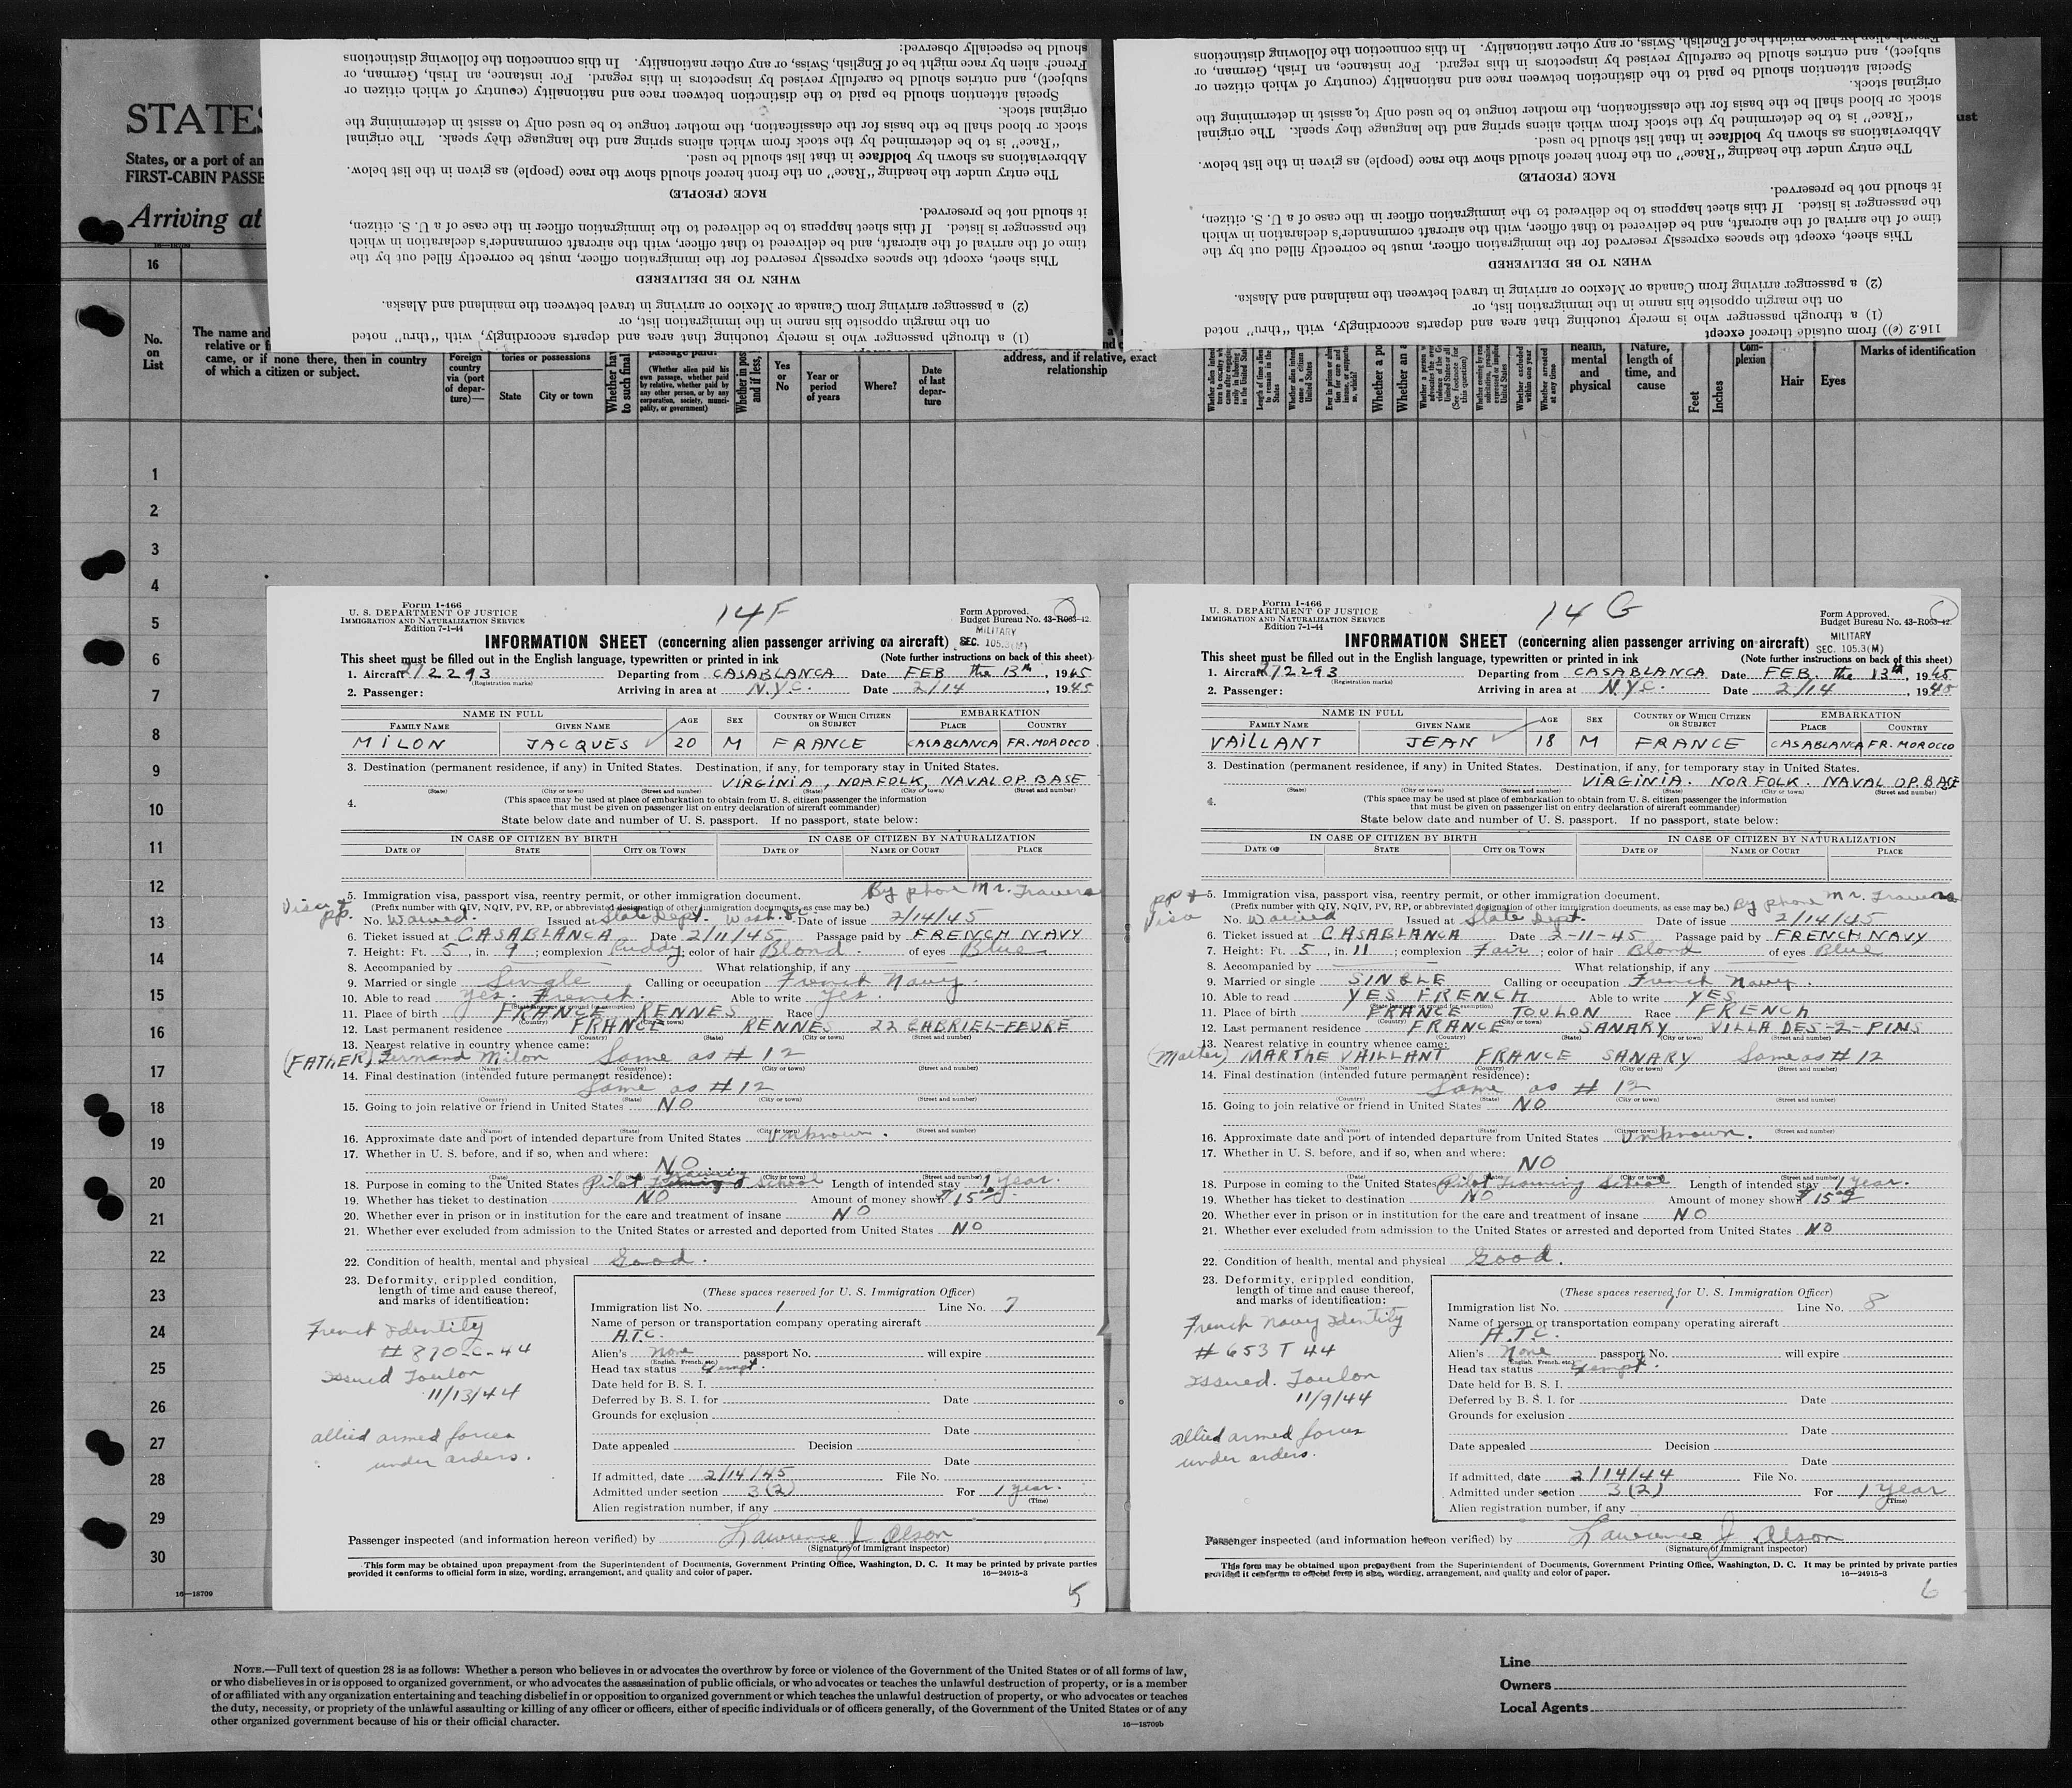 should be especially observed:
French alien by race might be of English, Swiss, or any other nationality. In this connection the following distinctions
subject), and entries should be carefully revised by inspectors in this regard. For instance, an Irish, German, or
Special attention should be paid to the distinction between race and nationality (country of which citizen or
original stock.
stock or blood shall be the basis for the classification, the mother tongue to be used only to assist in determining the
"Race" is to be determined by the stock from which aliens spring and the language they speak. The original
Abbreviations as shown by boldface in that list should be used.
The entry under the heading "Race" on the front hereof should show the race (people) as given in the list below.
RACE (PEOPLE)
it should not be preserved.
the passenger is listed. If this sheet happens to be delivered to the immigration officer in the case of a U. S. citizen,
time of the arrival of the aircraft, and be delivered to that officer, with the aircraft commander's declaration in which
This sheet, except the spaces expressly reserved for the immigration officer, must be correctly filled out by the
WHEN TO BE DELIVERED
(2) a passenger arriving from Canada or Mexico or arriving in travel between the mainland and Alaska.
on the margin opposite his name in the immigration list, or
(1) a through passenger who is merely touching that area and departs accordingly, with "thru" noted
French alien by race might be of English, Swiss, or any other nationality. In this connection the following distinctions
subject), and entries should be carefully revised by inspectors in this regard. For instance, an Irish, German, or
Special attention should be paid to the distinction between race and nationality (country of which citizen or
original stock.
stock or blood shall be the basis for the classification, the mother tongue to be used only to assist in determining the
"Race" is to be determined by the stock from which aliens spring and the language they speak. The original
Abbreviations as shown by boldface in that list should be used.
The entry under the heading "Race" on the front hereof should show the race (people) as given in the list below.
RACE (PEOPLE)
it should not be preserved.
the passenger is listed. If this sheet happens to be delivered to the immigration officer in the case of a U. S. citizen,
time of the arrival of the aircraft, and be delivered to that officer, with the aircraft commander's declaration in which
This sheet, except the spaces expressly reserved for the immigration officer, must be correctly filled out by the
WHEN TO BE DELIVERED
(2) a passenger arriving from Canada or Mexico or arriving in travel between the mainland and Alaska.
on the margin opposite his name in the immigration list, or
(1) a through passenger who is merely touching that area and departs accordingly, with "thru" noted
116.2 (e)) from outside thereof except
STATES
States, or a port of an
FIRST-CABIN PASSE
Arriving at
16—18709
16
No. on List
The name and
relative or f
came, or if none there, then in country
of which a citizen or subject.
Foreign country via (port of departure)—
tories or possessions
State
City or town
Whether hav
to such final
passage paid?
(Whether alien paid his own passage, whether paid by relative, whether paid by any other person, or by any corporation, society, municipality, or government)
Whether in pos
and if less,
Yes or No
Year or period of years
Where?
Date of last departure
address, and if relative, exact
relationship
Whether a po
Whether an a
health, mental and physical
Nature, length of time, and cause
Feet
Inches
Complexion
Hair
Eyes
Marks of identification
1
2
3
4
5
6
7
8
9
10
11
12
13
14
15
16
17
18
19
20
21
22
23
24
25
26
27
28
29
30
16—18709
Form I-466
U. S. DEPARTMENT OF JUSTICE
IMMIGRATION AND NATURALIZATION SERVICE
Edition 7-1-44
14F
Form Approved.
Budget Bureau No. 43-R063-42.
MILITARY
SEC. 105.3(M)
INFORMATION SHEET (concerning alien passenger arriving on aircraft)
This sheet must be filled out in the English language, typewritten or printed in ink (Note further instructions on back of this sheet)
1. Aircraft 272293 Departing from CASABLANCA Date FEB the 13th, 1945
(Registration marks)
2. Passenger: Arriving in area at N.Y.C. Date 2/14, 1945
NAME IN FULL AGE SEX COUNTRY OF WHICH CITIZEN OR SUBJECT EMBARKATION
FAMILY NAME GIVEN NAME PLACE COUNTRY
MILON JACQUES 20 M FRANCE CASABLANCA FR. MOROCCO
3. Destination (permanent residence, if any) in United States. Destination, if any, for temporary stay in United States.
VIRGINIA, NORFOLK, NAVAL OP. BASE
(State) (City or town) (Street and number) (State) (City or town) (Street and number)
4. (This space may be used at place of embarkation to obtain from U. S. citizen passenger the information
that must be given on passenger list on entry declaration of aircraft commander)
State below date and number of U. S. passport. If no passport, state below:
IN CASE OF CITIZEN BY BIRTH IN CASE OF CITIZEN BY NATURALIZATION
DATE OF STATE CITY OR TOWN DATE OF NAME OF COURT PLACE
5. Immigration visa, passport visa, reentry permit, or other immigration document. By phone Mr. Travers
(Prefix number with QIV, NQIV, PV, RP, or abbreviated designation of other immigration documents, as case may be.)
Visa & pp. No. Waived. Issued at State Dept. Wash. DC Date of issue 2/14/45
6. Ticket issued at CASABLANCA Date 2/11/45 Passage paid by FRENCH NAVY
7. Height: Ft. 5, in. 9; complexion Ruddy; color of hair Blond. of eyes Blue
8. Accompanied by What relationship, if any
9. Married or single Single Calling or occupation French Navy.
10. Able to read Yes. French. Able to write Yes.
(State language or ground for exemption)
11. Place of birth FRANCE RENNES Race
(Country) (City or town)
12. Last permanent residence FRANCE RENNES 22 GABRIEL-FEURE
(Country) (State) (City or town) (Street and number)
13. Nearest relative in country whence came:
(FATHER) Fernand Milon Same as # 12
(Name) (Country) (City or town) (Street and number)
14. Final destination (intended future permanent residence):
Same as # 12
(Country) (State) (City or town) (Street and number)
15. Going to join relative or friend in United States NO
(Name) (State) (City or town) (Street and number)
16. Approximate date and port of intended departure from United States Unknown.
17. Whether in U. S. before, and if so, when and where:
NO
(Date) (City or town) (Street and number)
18. Purpose in coming to the United States Pilot training School Length of intended stay 1 Year.
19. Whether has ticket to destination NO Amount of money shown $15.00
20. Whether ever in prison or in institution for the care and treatment of insane NO
21. Whether ever excluded from admission to the United States or arrested and deported from United States NO
22. Condition of health, mental and physical Good.
23. Deformity, crippled condition,
length of time and cause thereof,
and marks of identification:
French Identity
# 870-C-44
Issued Toulon
11/13/44
allied armed forces
under orders.
(These spaces reserved for U. S. Immigration Officer)
Immigration list No. 1 Line No. 7
Name of person or transportation company operating aircraft
A.T.C.
Alien's None passport No. will expire
(English, French, etc.)
Head tax status Exempt.
Date held for B. S. I.
Deferred by B. S. I. for Date
Grounds for exclusion
Date
Date appealed Decision
Date
If admitted, date 2/14/45 File No.
Admitted under section 3(2) For 1 year.
(Time)
Alien registration number, if any
Passenger inspected (and information hereon verified) by Lawrence J. Olson
(Signature of immigrant inspector)
This form may be obtained upon prepayment from the Superintendent of Documents, Government Printing Office, Washington, D. C. It may be printed by private parties
provided it conforms to official form in size, wording, arrangement, and quality and color of paper. 16—24915-3
5
Form I-466
U. S. DEPARTMENT OF JUSTICE
IMMIGRATION AND NATURALIZATION SERVICE
Edition 7-1-44
14 G
Form Approved.
Budget Bureau No. 43-R063-42.
MILITARY
SEC. 105.3(M)
INFORMATION SHEET (concerning alien passenger arriving on aircraft)
This sheet must be filled out in the English language, typewritten or printed in ink (Note further instructions on back of this sheet)
1. Aircraft 272293 Departing from CASABLANCA Date FEB. the 13th, 1945
(Registration marks)
2. Passenger: Arriving in area at N.Y.C. Date 2/14, 1945
NAME IN FULL AGE SEX COUNTRY OF WHICH CITIZEN OR SUBJECT EMBARKATION
FAMILY NAME GIVEN NAME PLACE COUNTRY
VAILLANT JEAN 18 M FRANCE CASABLANCA FR. MOROCCO
3. Destination (permanent residence, if any) in United States. Destination, if any, for temporary stay in United States.
VIRGINIA. NORFOLK. NAVAL OP. BASE
(State) (City or town) (Street and number) (State) (City or town) (Street and number)
4. (This space may be used at place of embarkation to obtain from U. S. citizen passenger the information
that must be given on passenger list on entry declaration of aircraft commander)
State below date and number of U. S. passport. If no passport, state below:
IN CASE OF CITIZEN BY BIRTH IN CASE OF CITIZEN BY NATURALIZATION
DATE OF STATE CITY OR TOWN DATE OF NAME OF COURT PLACE
5. Immigration visa, passport visa, reentry permit, or other immigration document. By phone Mr. Travers
(Prefix number with QIV, NQIV, PV, RP, or abbreviated designation of other immigration documents, as case may be.)
pp & Visa No. Waived Issued at State Dept. Date of issue 2/14/45
6. Ticket issued at CASABLANCA Date 2-11-45 Passage paid by FRENCH NAVY
7. Height: Ft. 5, in. 11; complexion Fair; color of hair Blond of eyes Blue
8. Accompanied by What relationship, if any
9. Married or single SINGLE Calling or occupation French Navy.
10. Able to read YES FRENCH Able to write YES
(State language or ground for exemption)
11. Place of birth FRANCE TOULON Race FRENCH
(Country) (City or town)
12. Last permanent residence FRANCE SANARY VILLA DES-2-PINS
(Country) (State) (City or town) (Street and number)
13. Nearest relative in country whence came:
(Mother) MARTHE VAILLANT FRANCE SANARY Same as # 12
(Name) (Country) (City or town) (Street and number)
14. Final destination (intended future permanent residence):
Same as # 12
(Country) (State) (City or town) (Street and number)
15. Going to join relative or friend in United States NO
(Name) (State) (City or town) (Street and number)
16. Approximate date and port of intended departure from United States Unknown.
17. Whether in U. S. before, and if so, when and where:
NO
(Date) (City or town) (Street and number)
18. Purpose in coming to the United States Pilot training School Length of intended stay 1 year.
19. Whether has ticket to destination NO Amount of money shown $15.00
20. Whether ever in prison or in institution for the care and treatment of insane NO
21. Whether ever excluded from admission to the United States or arrested and deported from United States NO
22. Condition of health, mental and physical Good.
23. Deformity, crippled condition,
length of time and cause thereof,
and marks of identification:
French Navy Identity
# 653 T 44
Issued. Toulon
11/9/44
allied armed forces
under orders.
(These spaces reserved for U. S. Immigration Officer)
Immigration list No. 1 Line No. 8
Name of person or transportation company operating aircraft
A.T.C.
Alien's None passport No. will expire
(English, French, etc.)
Head tax status Exempt.
Date held for B. S. I.
Deferred by B. S. I. for Date
Grounds for exclusion
Date
Date appealed Decision
Date
If admitted, date 2/14/44 File No.
Admitted under section 3(2) For 1 Year
(Time)
Alien registration number, if any
Passenger inspected (and information hereon verified) by Lawrence J. Olson
(Signature of immigrant inspector)
This form may be obtained upon prepayment from the Superintendent of Documents, Government Printing Office, Washington, D. C. It may be printed by private parties
provided it conforms to official form in size, wording, arrangement, and quality and color of paper. 16—24915-3
6
NOTE.—Full text of question 28 is as follows: Whether a person who believes in or advocates the overthrow by force or violence of the Government of the United States or of all forms of law,
or who disbelieves in or is opposed to organized government, or who advocates the assassination of public officials, or who advocates or teaches the unlawful destruction of property, or is a member
of or affiliated with any organization entertaining and teaching disbelief in or opposition to organized government or which teaches the unlawful destruction of property, or who advocates or teaches
the duty, necessity, or propriety of the unlawful assaulting or killing of any officer or officers, either of specific individuals or of officers generally, of the Government of the United States or of any
other organized government because of his or their official character. 16—18709b
Line
Owners
Local Agents